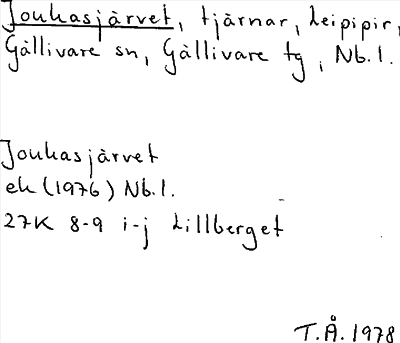 Jouhasjärvet, tjärnar, Leipipir,
Gällivare sn, Gällivare tg, Nb.l.
Jouhasjärvet
ek (1976) Nb.l.
27K 8-9 i-j Lillberget
T.Å. 1978